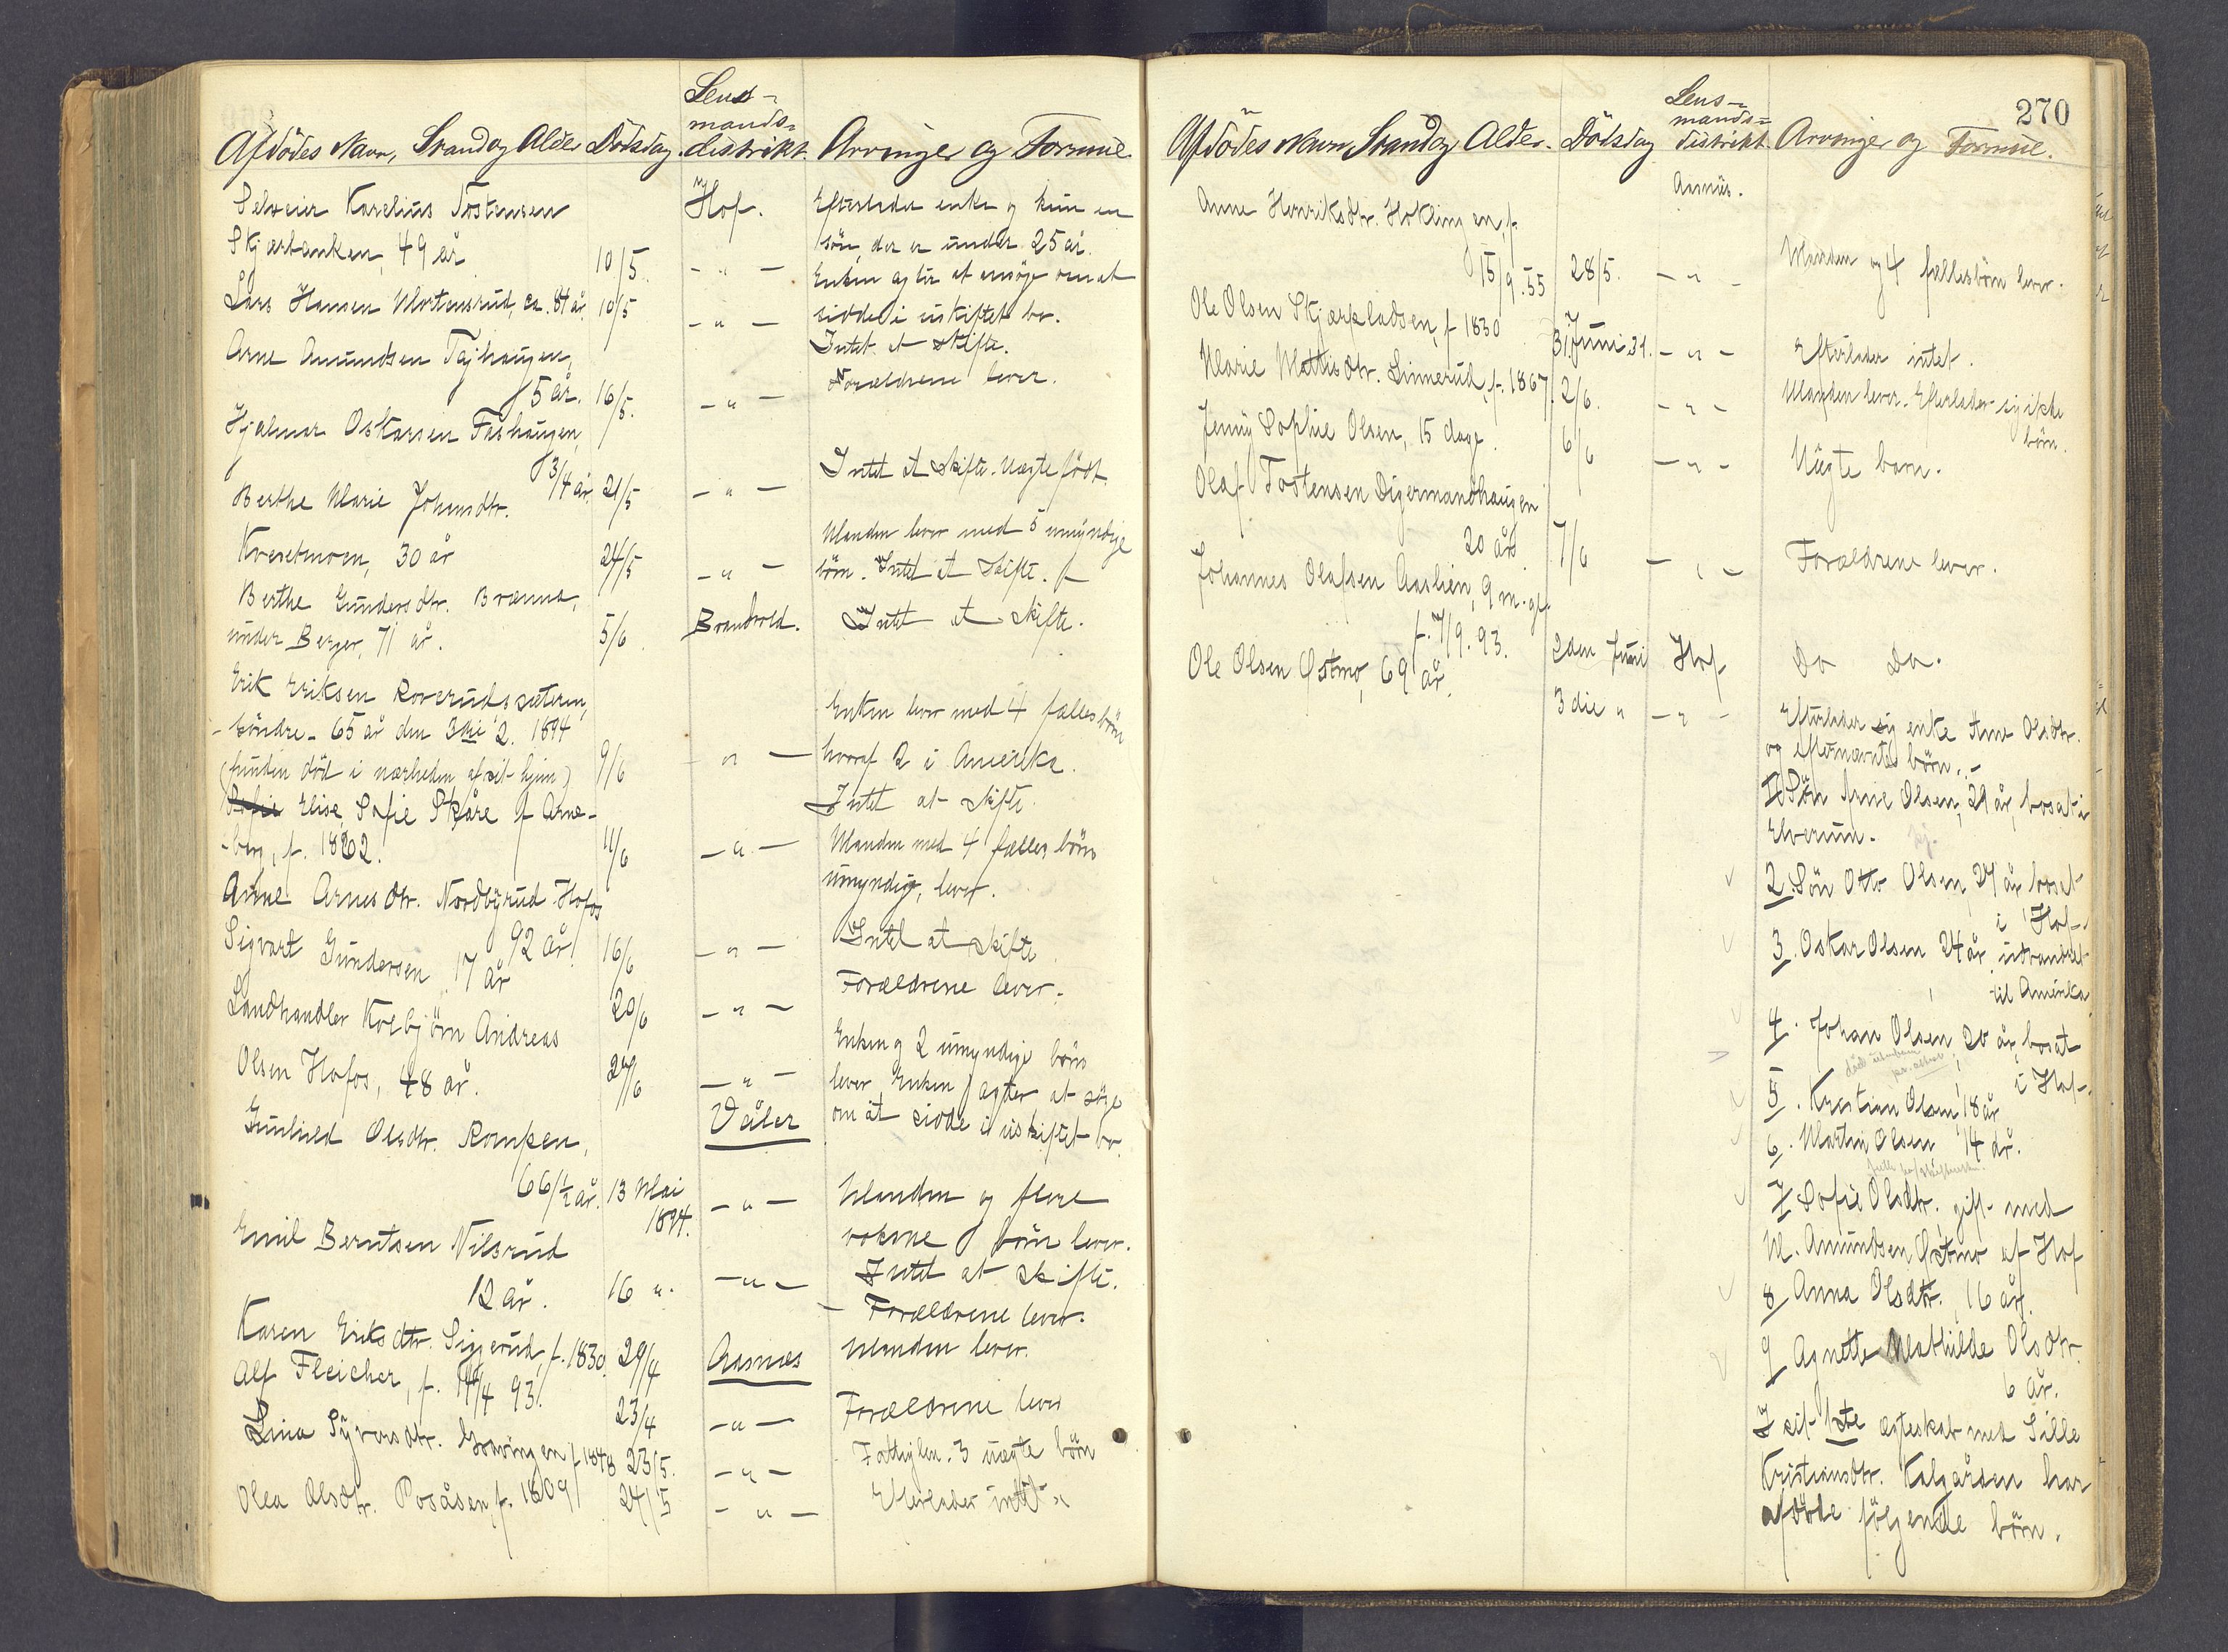 Lens-
mands-
Afdødes Navn, Stand og Alder Dødsdag distrikt. Arvinger og Formue.
Selveier Karelius Tostensen Hof. Efterlader enke og kun en
Skjærbenken, 49 år 10/5 søn, der er under 25 år.
- " - Enken agter at ansøge om at
Lars Hansen Mortensrud, ca. 84 år 10/5 - " - sidde i uskiftet bo.
Intet at skifte.
Arne Amundsen
5 år. 16/5. - " - Forældrene lever.
Hjalmar Oskarsen
3/4 år 21/5 - " - Intet at skifte. Uægte født.
Berthe Marie Johansdtr.
Kvesetmoen, 30 år 24/5 - " - Manden lever med 5 umyndige
børn. Intet at skifte.
Berthe Gundersdtr. Brænna,
under Berger, 71 år. 5/6 Brandvold. Intet at skifte.
Erik Eriksen Roverudssæteren,
søndre - 65 år den 3die 2. 1894 Enken lever med 4 fælles børn
(funden død i nærheden af sit hjem) 9/6 " - hvoraf 2 i Amerika.
Intet at skifte.
Elise Sofie Skåre af Arne-
berg, f. 1862. 11/6 - " - Manden med 4 fælles børn
umyndige, lever.
Anne Arnesdtr. Nordbyrud Hofos
92 år 16/6 - " - Intet at skifte
Sigvart Gundersen 17 år 20/6 - " - Forældrene lever.
Landhandler Kolbjørn Andreas
Olsen Hofos, 48 år. 24/6 - " - Enken og 2 umyndige børn
lever. Enken agter at søge
Våler om at sidde i uskiftet bo.
Gunhild Olsdtr. Rompen,
66 1/2 år. 13 Mai
1894. - " - Manden og flere
voksne børn lever.
Emil Berntsen Nilsrud Intet at skifte.
12 år. 16 " - " - - Forældrene lever.
Karen Eriksdtr. Siggerud, f. 1830. 29/4 Aasnes Manden lever.
Alf Fleicher, f. 14/4 93. 23/4 - " - Forældrene lever
Lina Syversdtr. f. 1848 23/5. - " - Fattiglem. 3 uægte børn
Olea Olsdtr. Posåsen f. 1809 24/5 - " - Efterlader intet
270
Lens-
mands-
Afdødes Navn, Stand og Alder. Dødsdag distrikt. Arvinger og Formue.
Aasnæs.
Anne Henriksdtr. Hoklingen, f.
15/9.55 28/5. - " - Manden og 4 fællesbørn lever.
Ole Olsen Skjærpladsen, f 1830 - " - Efterlader intet.
Marie Mathisdtr. Linnerud, f. 1867. 2/6. - " - Manden lever. Efterlader sig ikke
børn.
Jenny Sophie Olsen, 15 dage. 6/6 - " - Uægte barn.
Olaf Tostensen Digermandhaugen
20 år 7/6 - " - Forældrene lever.
Johannes Olafsen Aaslien, 9 m. gl.
f. 7/9. 93. 2den Juni Hof Do Do.
Ole Olsen Østmo, 69 år. 3die " - " - Efterlader sig enke Ane Olsdtr.
og efternævnte børn:-
1 Søn Arne Olsen, 29 år, bosat i
Elverum.
2. Søn Otto Olsen, 27 år bosat
i Hof.
3. Oskar Olsen 24 år udvandret
til Amerika
4. Johan Olsen, 20 år, bosat
i Hof.
5. Kristian Olsen, 18 år
6. Martin Olsen 14 år.
7 Sofie Olsdtr. gift med
M. Amundsen Østmo af Hof
8 Anna Olsdtr., 16 år.
9 Agnette Mathilde Olsdtr.
6 år.
I sit 1ste ægteskab med Sille
Kristiansdtr. Kalgården har
afdøde følgende børn.